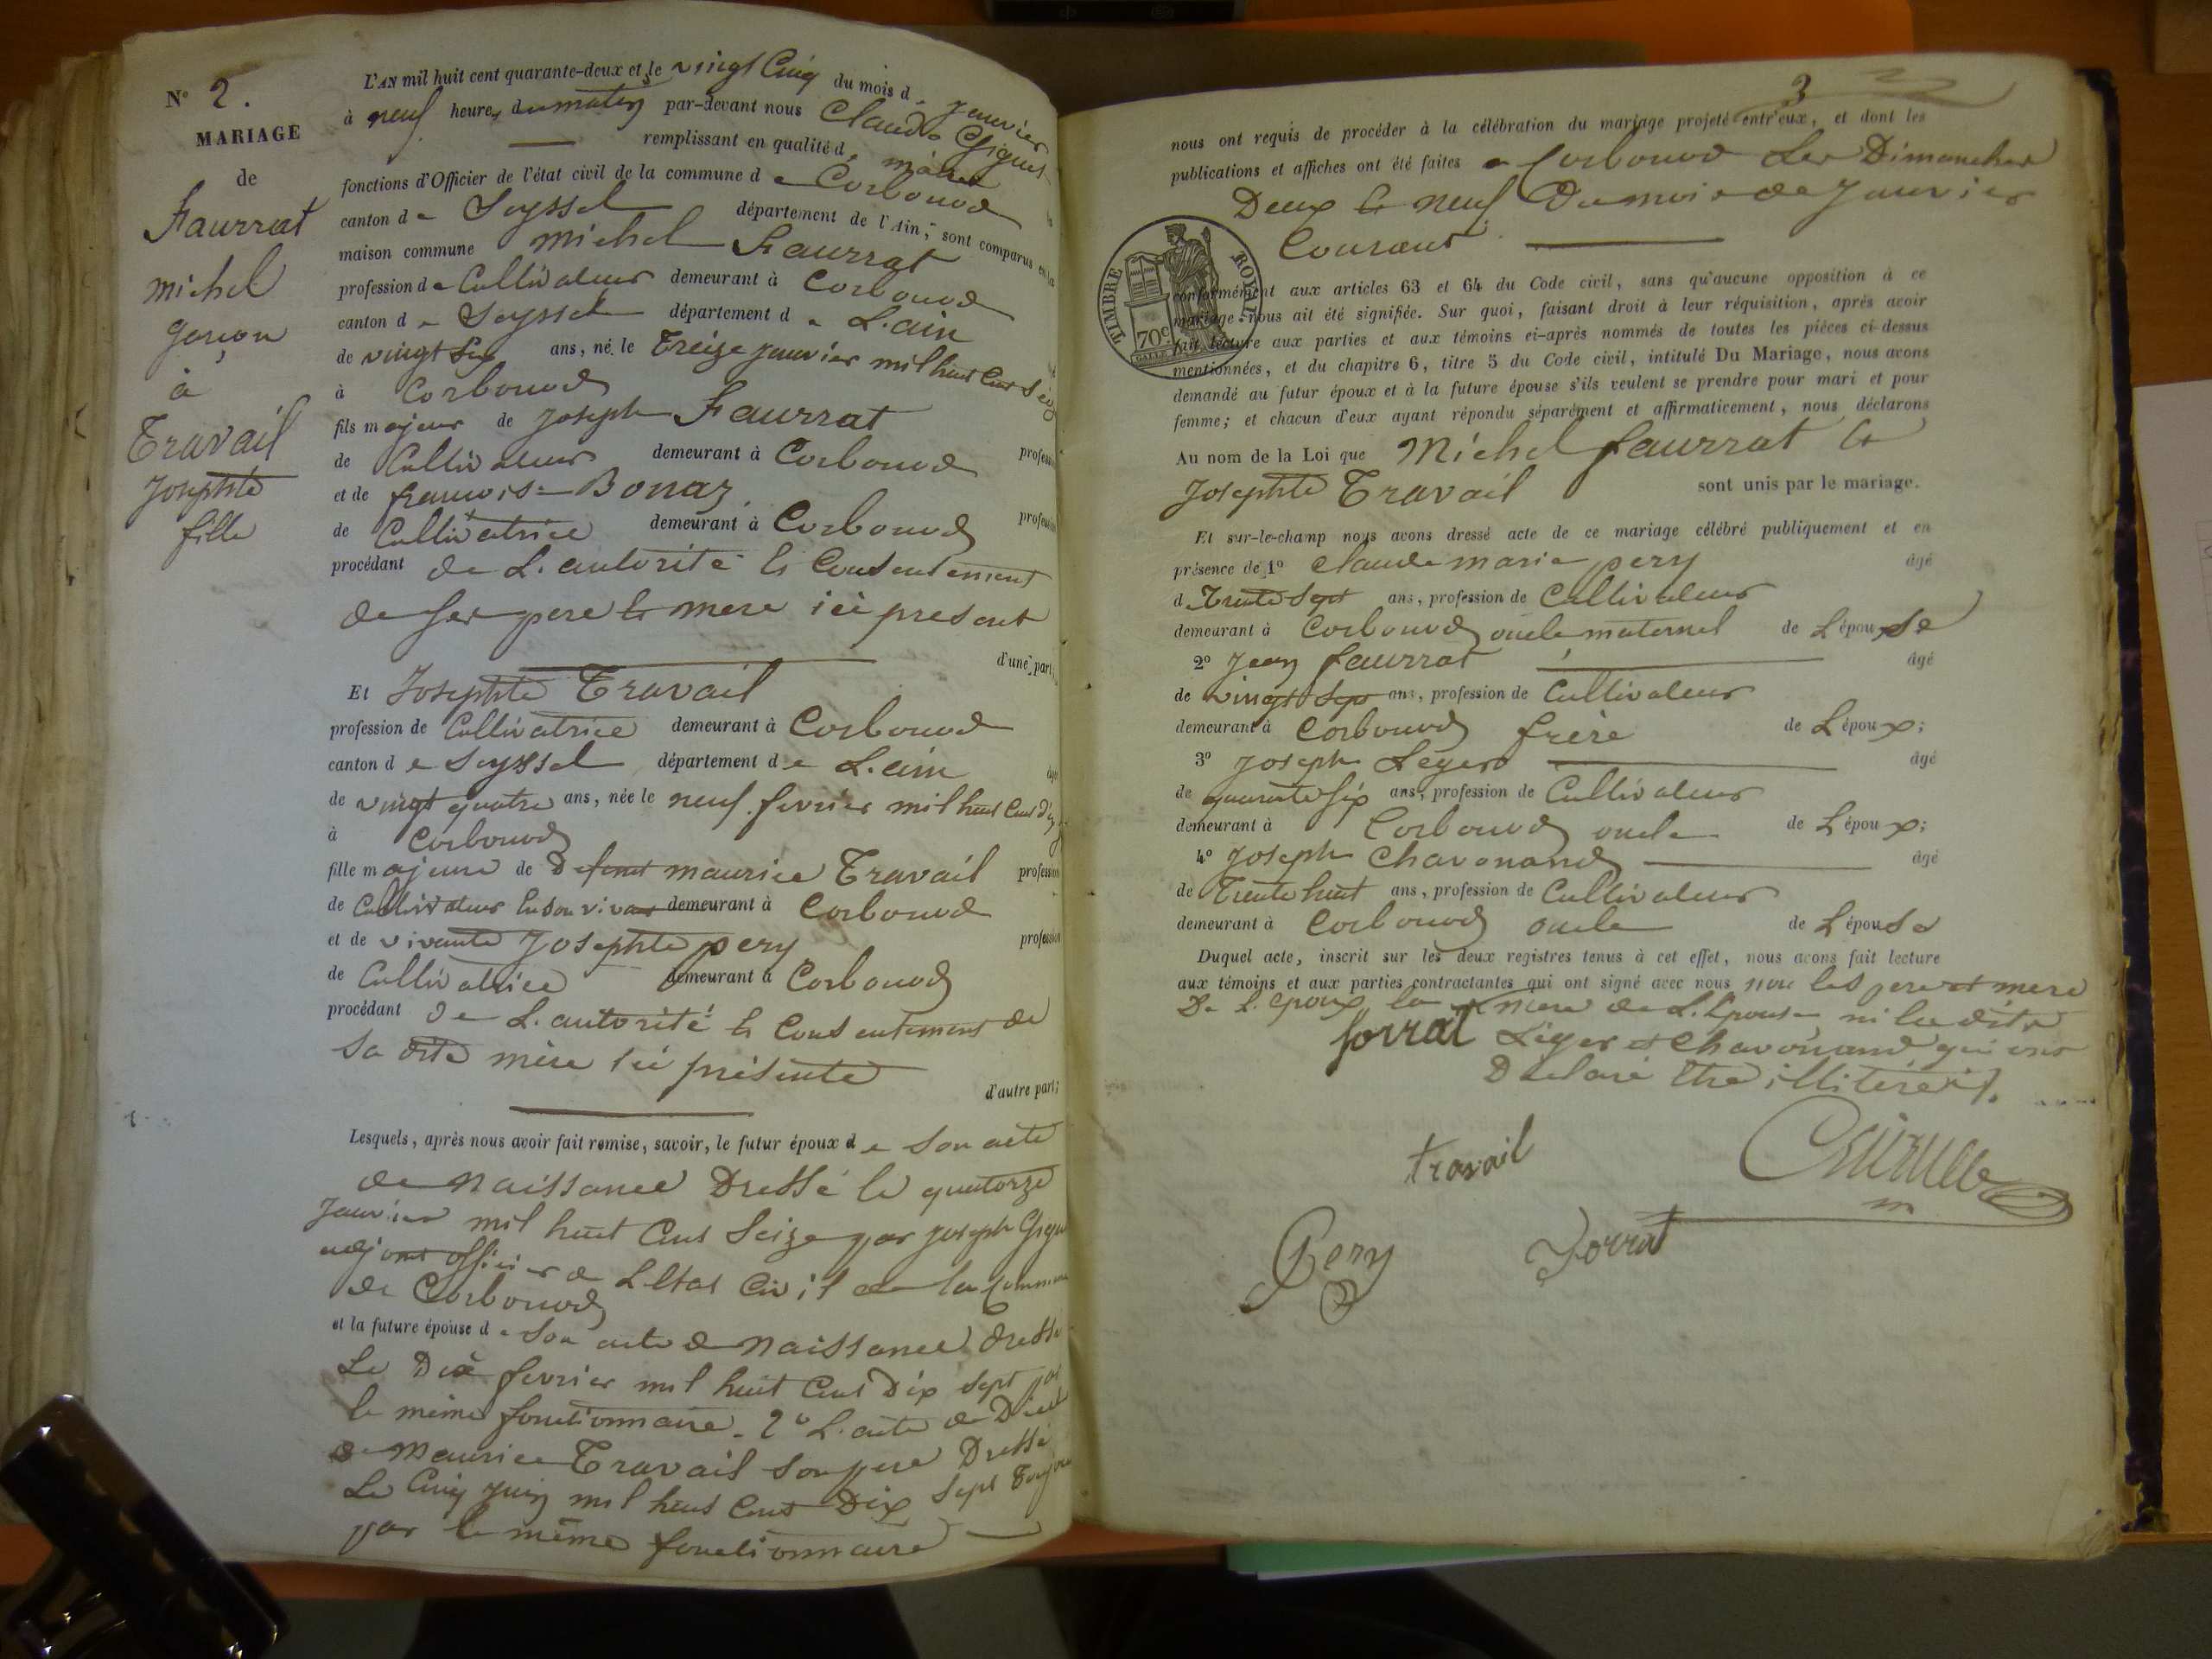 N° 2.
MARIAGE
de
Faurrat
michel
garçon
à
Travail
Josephte
fille
L'AN mil huit cent quarante-deux et le vingt Cinq du mois de Janvier
à neuf heures du matin par-devant nous Claude Giguet
remplissant en qualité de maire
fonctions d'Officier de l'état civil de la commune de Corbonod
canton de Seyssel département de l'Ain, sont comparus en la
maison commune Michel Faurrat
profession de Cultivateur demeurant à Corbonod
canton de Seyssel département de L'ain
de vingt six ans, né le Treize janvier mil huit Cent Seize
à Corbonod
fils majeur de Joseph Faurrat profession
de Cultivateur demeurant à Corbonod
et de francoise Bonaz profession
de Cultivatrice demeurant à Corbonod
procédant de L'autorité et Consentement
de ses pere et mere ici present
d'une part;
Et Josephte Travail
profession de Cultivatrice demeurant à Corbonod
canton de Seyssel département de L'ain
de vingt quatre ans, née le neuf fevrier mil huit Cent dix
à Corbonod
fille majeure de Defunt maurice Travail profession
de Cultivateur en son vivant demeurant à Corbonod
et de vivante Josephte pery profession
de Cultivatrice demeurant à Corbonod
procédant de L'autorité et Consentement de
Sa dite mère ici présente
d'autre part;
Lesquels, après nous avoir fait remise, savoir, le futur époux de Son acte
de Naissance Dressé le quatorze
Janvier mil huit Cent Seize par Joseph Gigu
adjoint officier de L'Etat Civil de la Commune
de Corbonod
et la future épouse de Son acte de Naissance dressé
Le Dix fevrier mil huit Cent Dix Sept par
le même fonctionnaire. 2° L'acte de Décès
de Maurice Travail Son pere Dressé
Le Cinq juin mil huit Cent Dix Sept Toujours
par le même fonctionnaire
3
nous ont requis de procéder à la célébration du mariage projeté entr'eux, et dont les
publications et affiches ont été faites a Corbonod Les Dimanches
Deux et neuf Du mois de Janvier
Courant
TIMBRE ROYAL
70c
conformément aux articles 63 et 64 du Code civil, sans qu'aucune opposition à ce
mariage nous ait été signifiée. Sur quoi, faisant droit à leur réquisition, après avoir
fait lecture aux parties et aux témoins ci-après nommés de toutes les pièces ci-dessus
mentionnées, et du chapitre 6, titre 5 du Code civil, intitulé Du Mariage, nous avons
demandé au futur époux et à la future épouse s'ils veulent se prendre pour mari et pour
femme; et chacun d'eux ayant répondu séparément et affirmativement, nous déclarons
Au nom de la Loi que Michel faurrat et
Josephte Travail sont unis par le mariage.
Et sur-le-champ nous avons dressé acte de ce mariage célébré publiquement et en
présence de 1° Claude marie pery âgé
de Trente Sept ans, profession de Cultivateur
demeurant à Corbonod oncle maternel de L'épouse
2° Jean faurrat âgé
de vingt Sept ans, profession de Cultivateur
demeurant à Corbonod frère de L'époux;
3° Joseph Leger âgé
de quarante Six ans, profession de Cultivateur
demeurant à Corbonod oncle de L'époux;
4° Joseph Chavonand âgé
de Trente huit ans, profession de Cultivateur
demeurant à Corbonod oncle de L'épouse
Duquel acte, inscrit sur les deux registres tenus à cet effet, nous avons fait lecture
aux témoins et aux parties contractantes qui ont signé avec nous non les pere et mere
De L'époux, la mere de L'Epouse, ni les dits
forrat Léger et Chavonand qui ont
Déclaré être illitérés.
travail
Pery
Jorrat